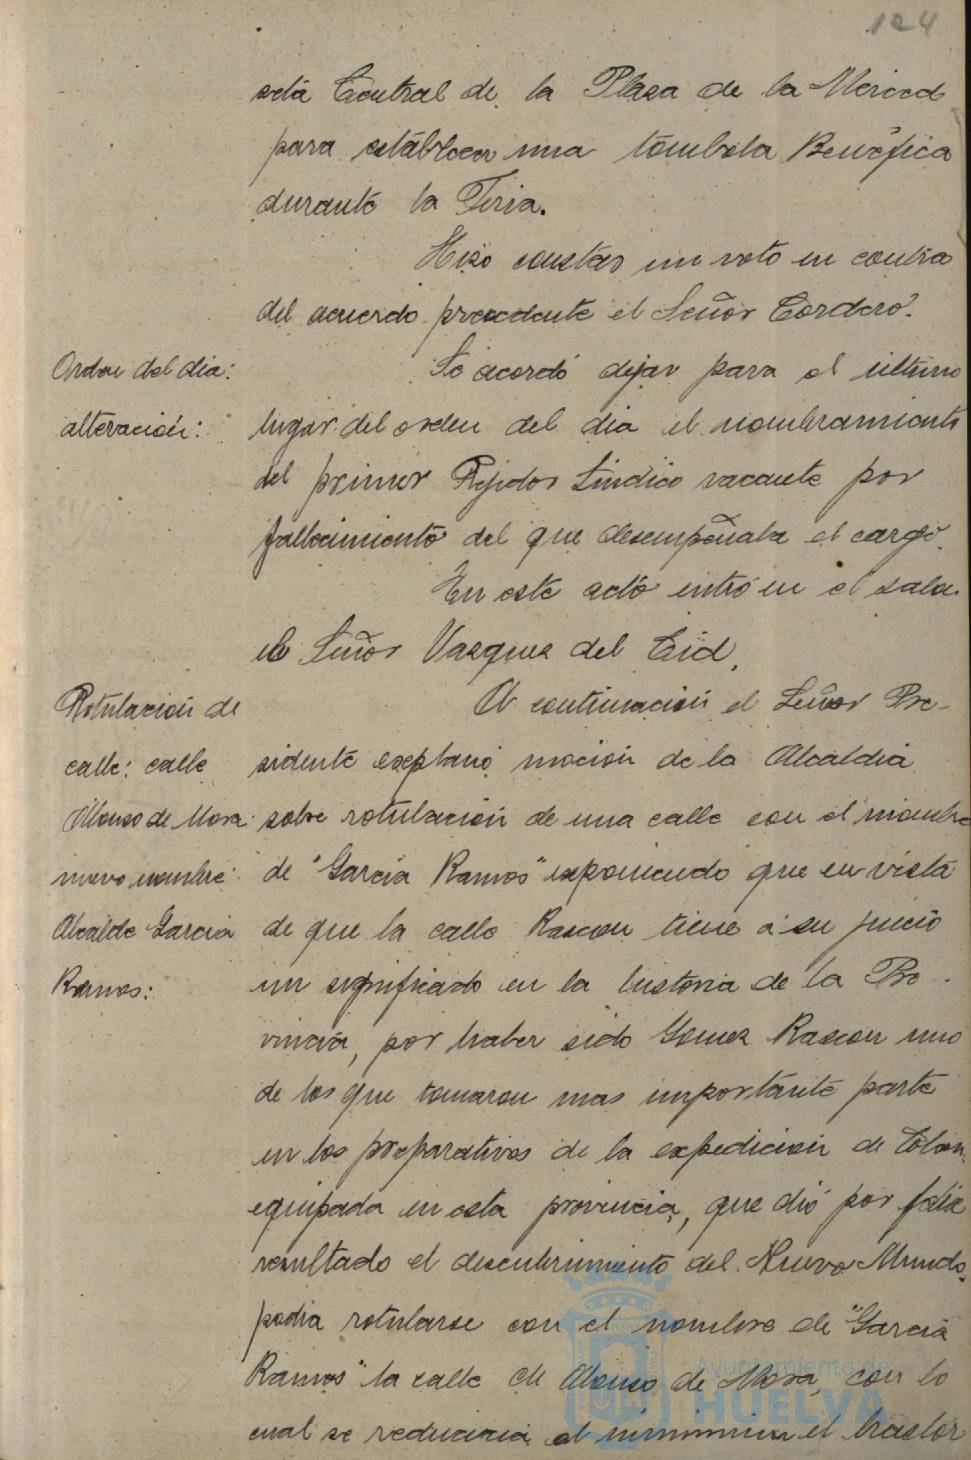 124
seta Central de la Plaza de la Merced
para establecer una tómbola Benéfica
durante la Feria.
Hizo constar un voto en contra
del acuerdo precedente el Señor Cordero.
Orden del dia:
alteración:
Se acordó dejar para el ultimo
lugar del orden del dia el nombramiento
del primer Rejidor Sindico vacante por
fallecimiento del que desempeñaba el cargo.
En este acto entró en el sala
el Señor Vazquez del Cid.
Rotulación de
calle: calle
Alonso de Mora
nuevo nombre
Alcalde Garcia
Ramos:
A continuación el Señor Pre-
sidente explanó moción de la Alcaldia
sobre rotulación de una calle con el nombre
de "Garcia Ramos" exponiendo que en vista
de que la calle Rascon tiene á su juicio
un significado en la historia de la Pro-
vincia, por haber sido Gomez Rascon uno
de los que tomaron mas importante parte
en los preparativos de la expedición de Colon,
equipada en esta provincia, que dió por feliz
resultado el descubrimiento del Nuevo Mundo,
podia rotularse con el nombre de "Garcia
Ramos" la calle de Alonso de Mora, con lo
cual se reduciria al minimum el trastor
Ayuntamiento de
HUELVA